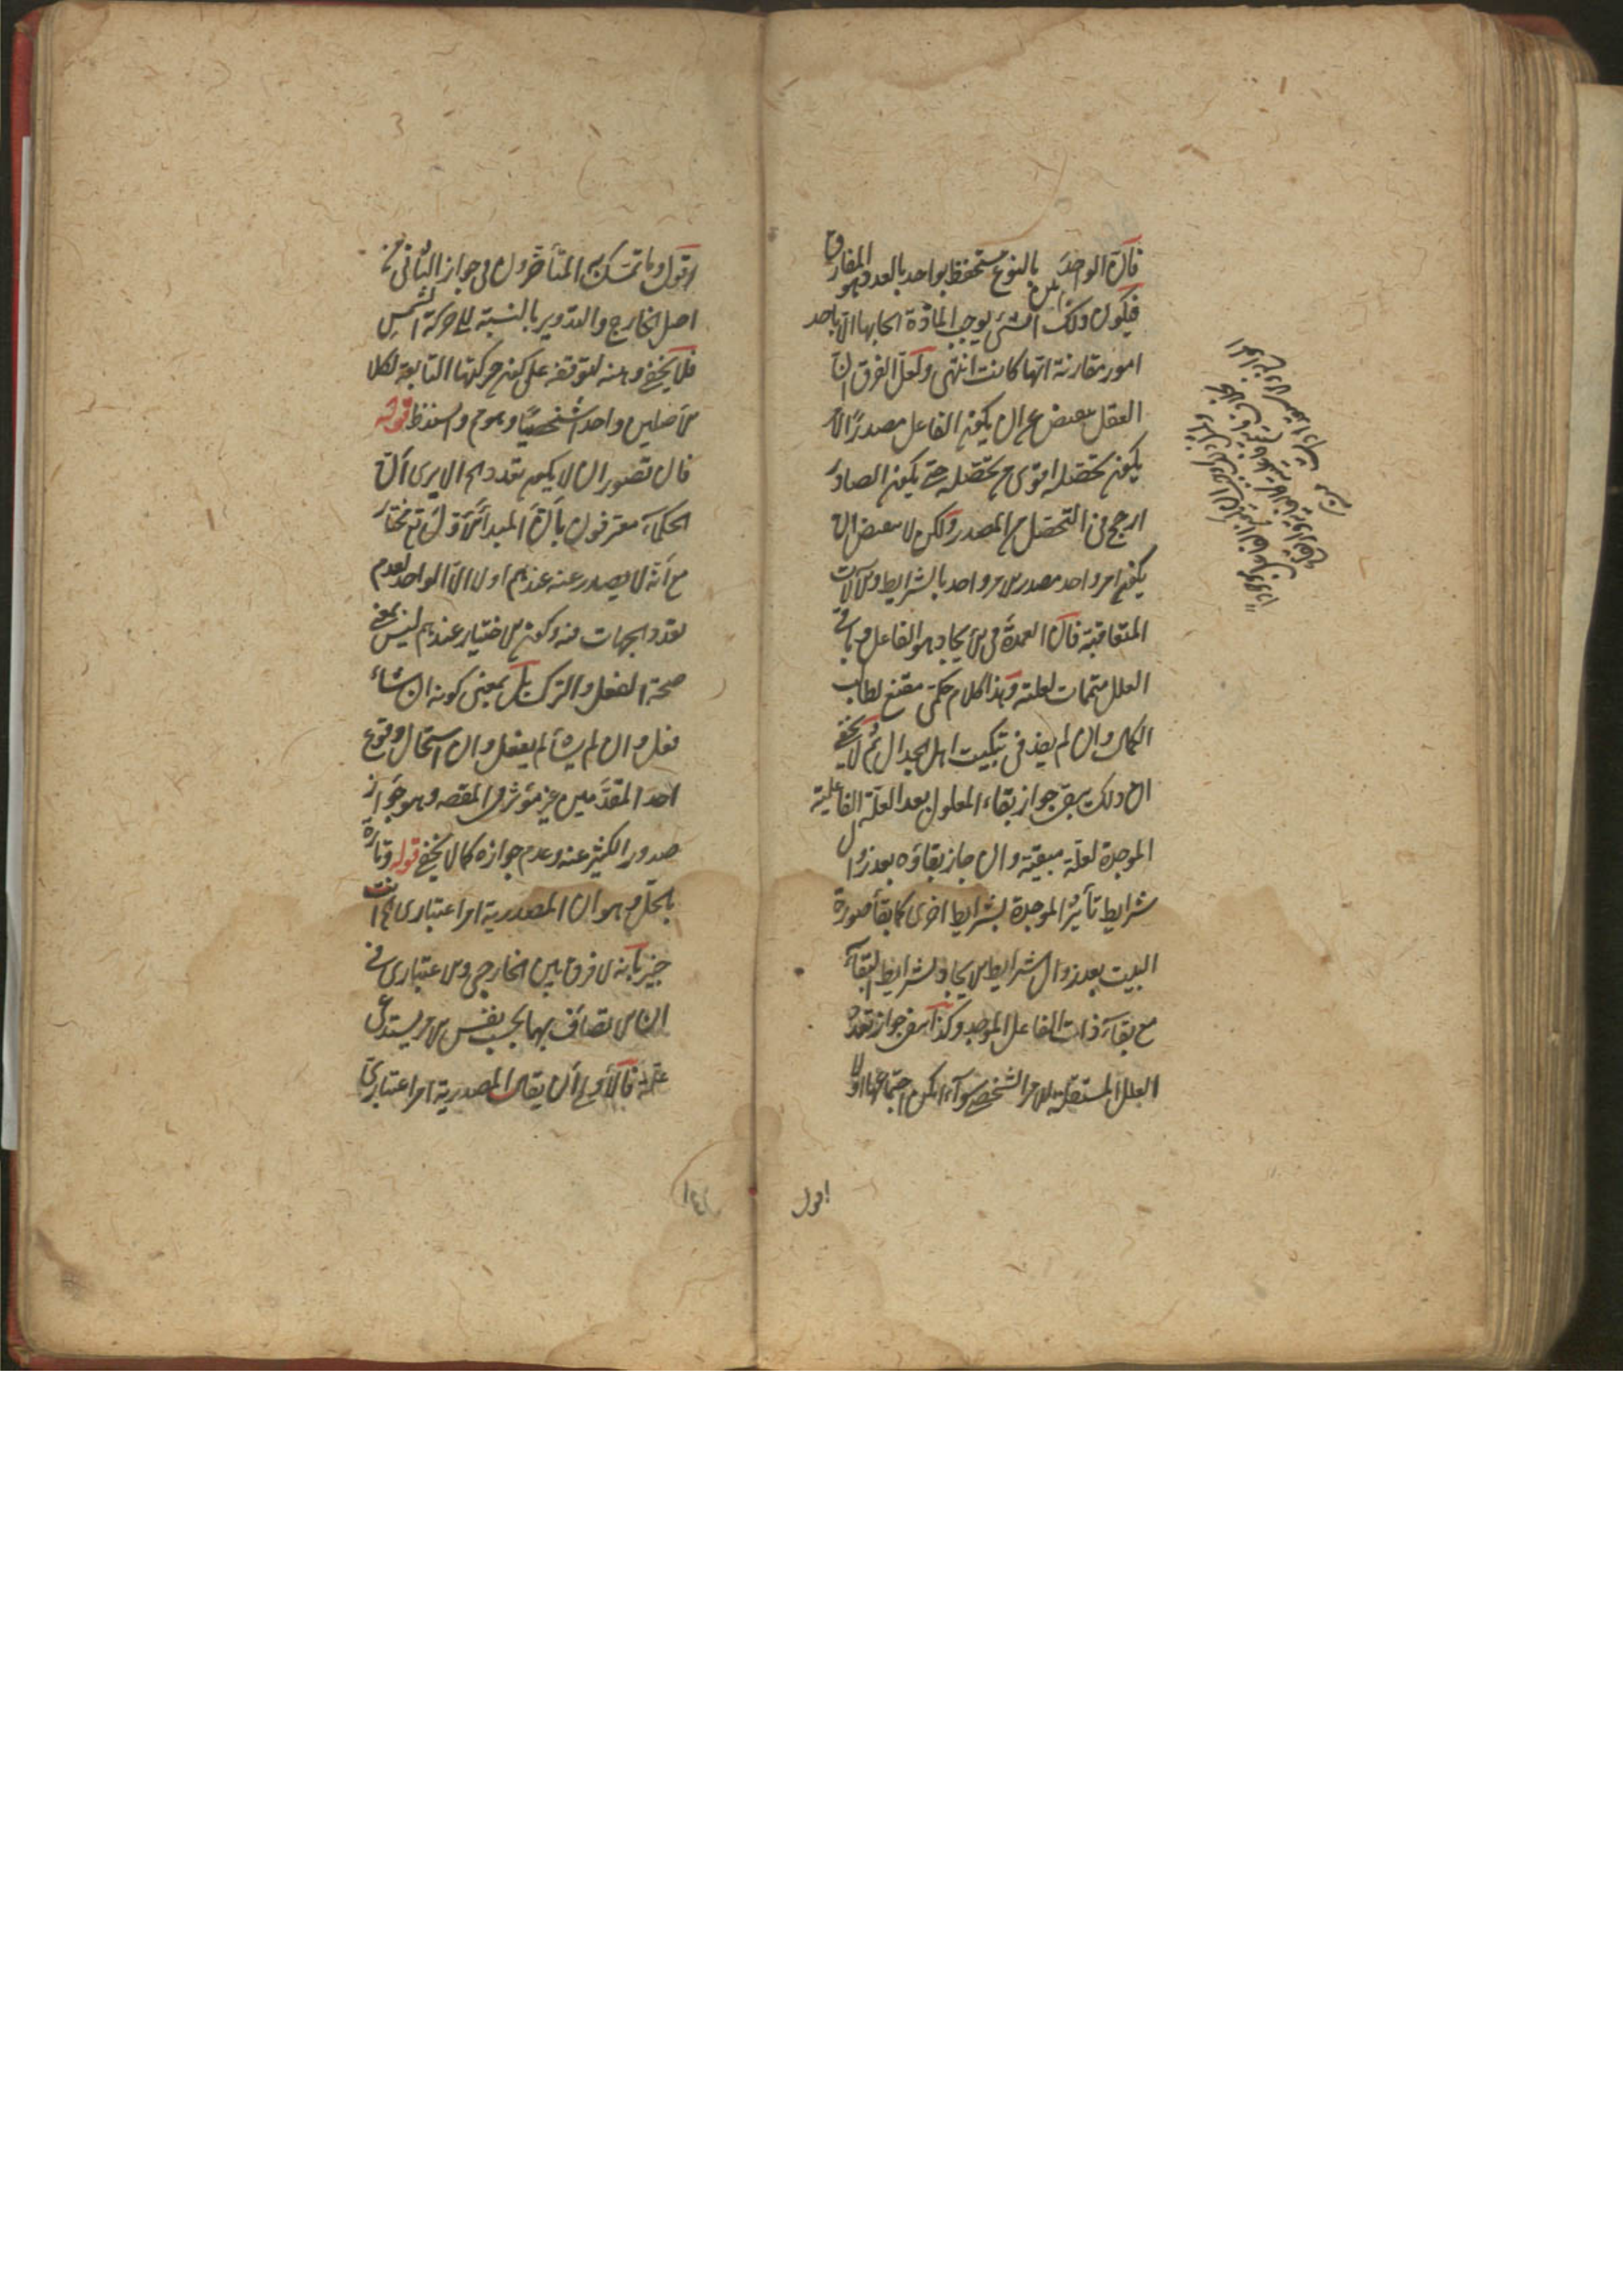 فان الواحد بالنوع مستحفظ بواحد بالعدد وهو المفارق
فيكون ذلك الشئ يوجب المادة ايجابها الا باحد
امور مقارنة ايها كانت انتهى ولعل الفرق ان
العقل ينقبض عن ان يكون الفاعل مصدرا لامر
يكون تحصله اقوى من تحصله حتى يكون الصادر
ارجح في التحصل من المصدر ولكن لا ينقبض ان
يكون امر واحد مصدر لامر واحد بالشرايط والآلات
المتعاقبة فان العمدة في الايجاد هو الفاعل وباقي
العلل متممات لعليته وهذا كلام حكمي مقنع لطالب
الكمال وان لم يفد في تبكيت اهل الجدال ثم لا يخفى
ان ذلك ينفي جواز بقاء المعلول بعد العلة الفاعلية
الموجدة لعلة مبقية وان جاز بقاؤه بعد زوال
شرايط تأثير الموجدة بشرايط اخرى كما بقاء صورة
البيت بعد زوال شرايط الايجاد لشرايط البقاء
مع بقاء ذات الفاعل الموجد وكذا ينفي جواز تعدد
العلل المستقلة للامر الشخصي سواء امكن اجتماعها اولا
اقول
اقول وما تمسك به المتأخرون في جواز الثاني من
اصل الخارج والتدوير بالنسبة الى حركة الشمس
فلا يخفى وهنه لتوقفه على كون حركتها التابعة لكلا
الاصلين واحدا شخصيا وهو م والسند ظ قوله
فان تصور ان لا يكون تعدد الخ الا يرى ان
الحكماء معترفون بان المبدأ الاول تع مختار
مع أنه لا يصدر عنه عندهم اولا الا الواحد لعدم
تعدد الجهات فيه وكون الاختيار عندهم ليس بمعنى
صحة الفعل والترك بل بمعنى كونه ان شاء
فعل وان لم يشأ لم يفعل وان استحال وقوع
احد المقدمين غير مؤثر في المقصد وهو جواز
صدور الكثير عنه وعدم جوازه كما لا يخفى قوله وتارة
بالحل وهو ان المصدرية امر اعتباري الخ انت
خبير بانه لا فرق بين الخارجي والاعتباري في
ان الاتصاف بهما بحسب نفس الامر يستدعي
علة فالأولى أن يقال المصدرية امر اعتباري